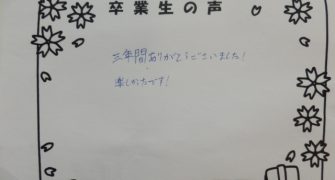 卒業生の声
三年間ありがとうございました!
楽しかったです!